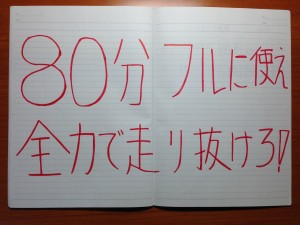 80分フルに使え
全力で走り抜けろ!